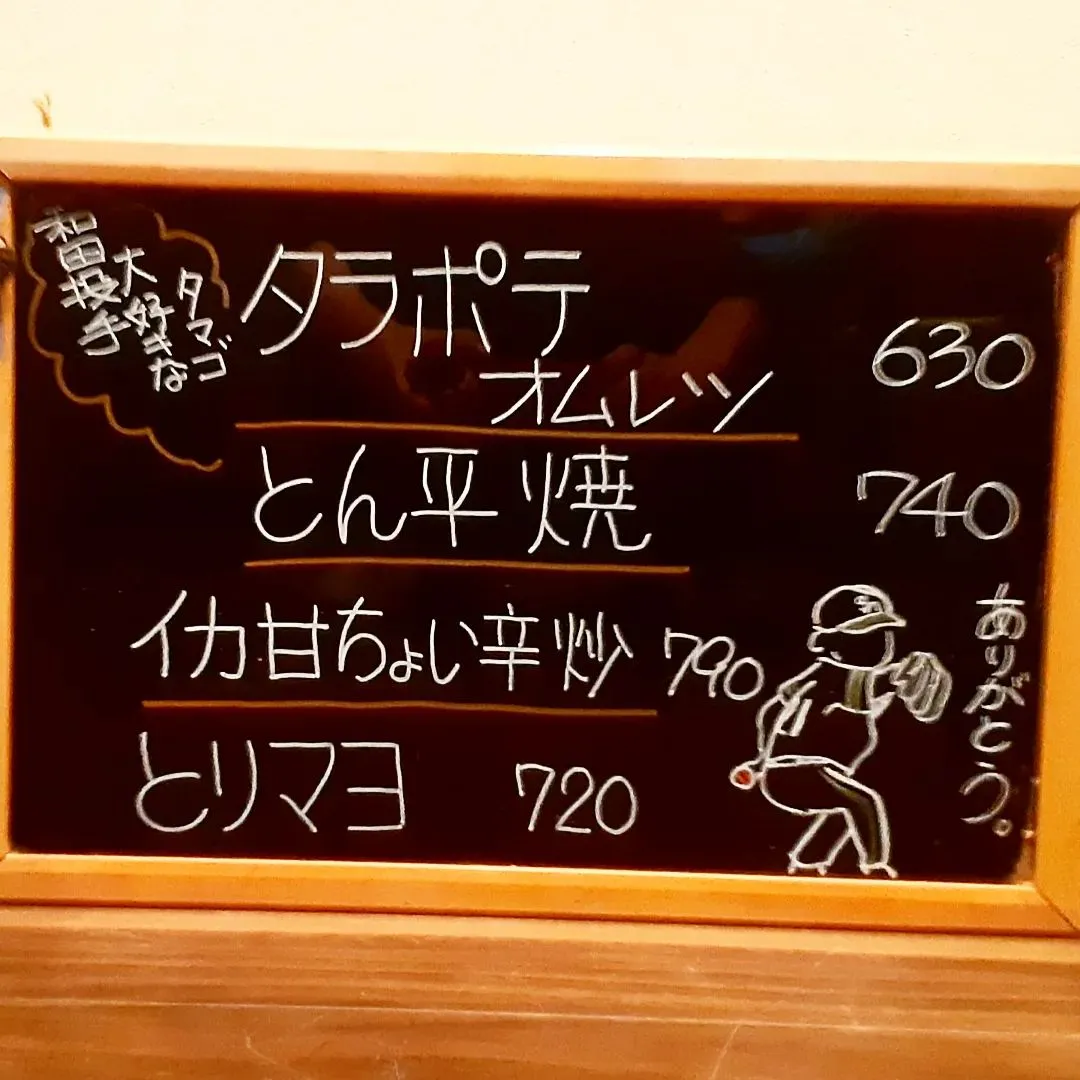 和田投手
大好きな
タマゴ
タラポテ
オムレツ
630
とん平焼
740
イカ甘ちょい辛炒 790
とりマヨ 720
ありがとう。